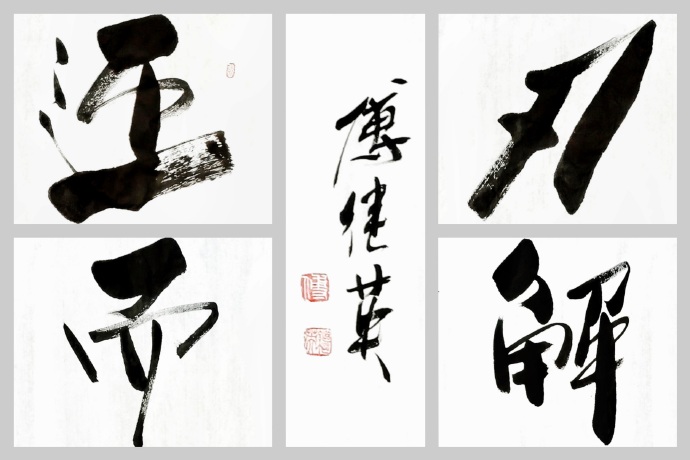 迎刃
而解
傅健英